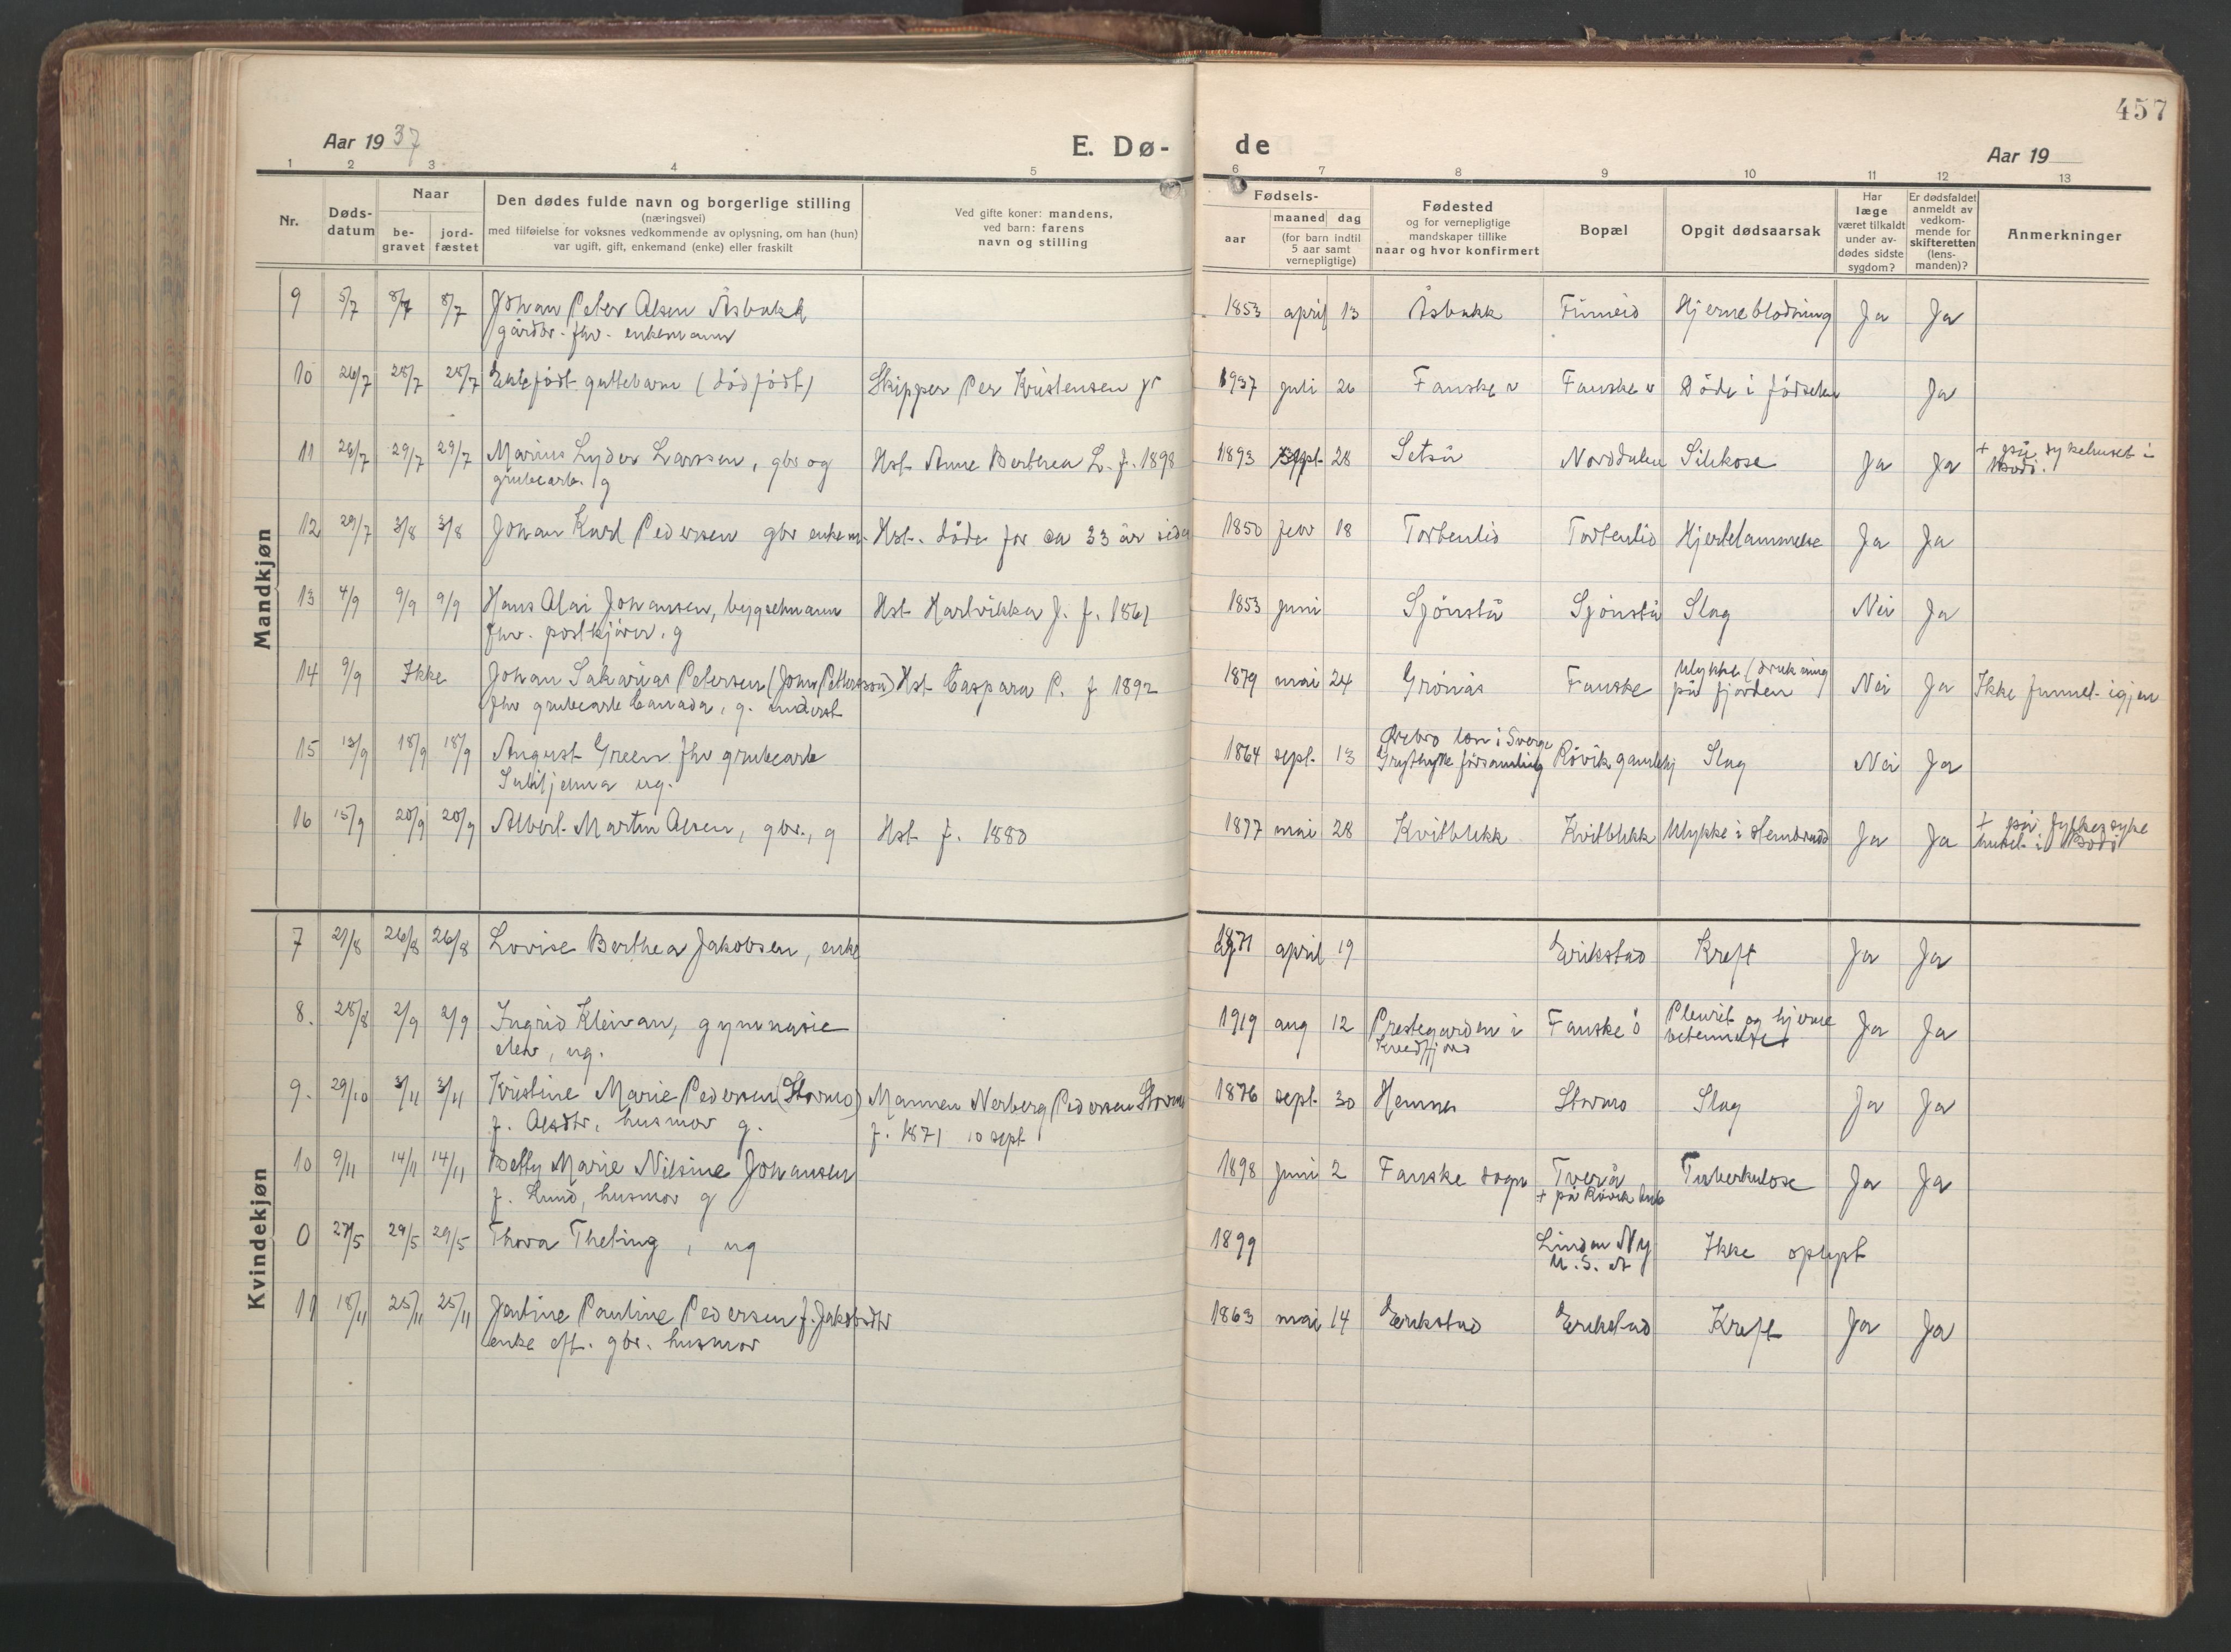 457
Aar 1937
E. Dø-
de
Aar 19
1 2 3 4 5 6 7 8 9 10 11 12 13
Nr.
Døds-
datum
Naar
be-
gravet
jord-
fæstet
Den dødes fulde navn og borgerlige stilling
(næringsvei)
med tilføielse for voksnes vedkommende av oplysning, om han (hun)
var ugift, gift, enkemand (enke) eller fraskilt
Ved gifte koner: mandens,
ved barn: farens
navn og stilling
Fødsels-
aar
maaned dag
(for barn indtil
5 aar samt
vernepligtige)
Fødested
og for vernepligtige
mandskaper tillike
naar og hvor konfirmert
Bopæl
Opgit dødsaarsak
Har
læge
været tilkaldt
under av-
dødes sidste
sygdom?
Er dødsfaldet
anmeldt av
vedkom-
mende for
skifteretten
(lens-
manden)?
Anmerkninger
Mandkjøn
9 5/7 8/7 8/7 Johan Peter Olsen Åsbakk 1853 april 13 Åsbakk Finneid Hjerneblødning Ja Ja
gårdbr. fhv. enkemann
10 26/7 28/7 28/7 Ektefødt guttebarn (dødfødt) Skipper Per Kristensen jr 1937 juli 26 Fauske v Fauske v Døde i fødselen Ja
11 26/7 29/7 29/7 Marius Lyder Larssen, gbr og Hst. Anne Berthea L. f. 1898 1893 sept. 28 Setså Norddalen Silikose Ja Ja + på sykehuset i
grubearb. g Bodø.
12 29/7 3/8 3/8 Johan Karl Pedersen gbr enkem. Hst. døde for ca 33 år siden 1850 febr 18 Tortenlid Tortenlid Hjertelammelse Ja Ja
13 4/9 9/9 9/9 Hans Olai Johansen, bygselmann Hst. Hartvikka J. f. 1861 1853 juni Sjønstå Sjønstå Slag Nei Ja
fhv. postkjører. g
14 9/9 Ikke Johan Sakarias Petersen (John Pettersson) Hst. Caspara P. f 1892 1879 mai 24 Grønås Fauske Ulykke (drukning Nei Ja Ikke funnet igjen
fhv grubearb Canada, g. på fjorden
15 13/9 18/9 18/9 August Green fhv grubearb 1864 sept. 13 Ørebro len i Sverge Røvik gamlehj Slag Nei Ja
Sulitjelma ug. Grythytte församling
16 15/9 20/9 20/9 Albert Martin Olsen, gbr., g Hst f. 1880 1877 mai 28 Kvitblikk Kvitblikk Ulykke i stenbrudd Ja Ja + på fylkessyke
huset i Bodø
Kvindekjøn
7 21/8 26/8 26/8 Lovise Berthea Jakobsen, enke 1871 april 19 Erikstad Kreft Ja Ja
8. 28/8 2/9 2/9 Ingrid Kleivan, gymnasie 1919 aug 12 Prestegarden i Fauske ö Pleurit og hjerne Ja Ja
elev, ug. betennelse
9. 29/10 3/11 3/11 Kristine Marie Pedersen (Stormo) Mannen Nerberg Pedersen Stormo 1876 sept. 30 Hemnes Stormo Slag Ja Ja
f. Olsdtr, husmor g. f. 1871 10 sept
10 9/11 14/11 14/11 Betty Marie Nilsine Johansen 1898 juni 2 Fauske sogn Tverå Tuberkulose Ja Ja
f. Lund, husmor g + på Røvik
0 27/5 29/5 29/5 Thora Theting, ug 1899 Linden Ny Ikke oplyst
U.S.A
11 18/11 25/11 25/11 Jentine Pauline Pedersen f. Jakobsdtr 1863 mai 14 Erikstad Erikstad Kreft Ja Ja
enke eft. gbr. husmor